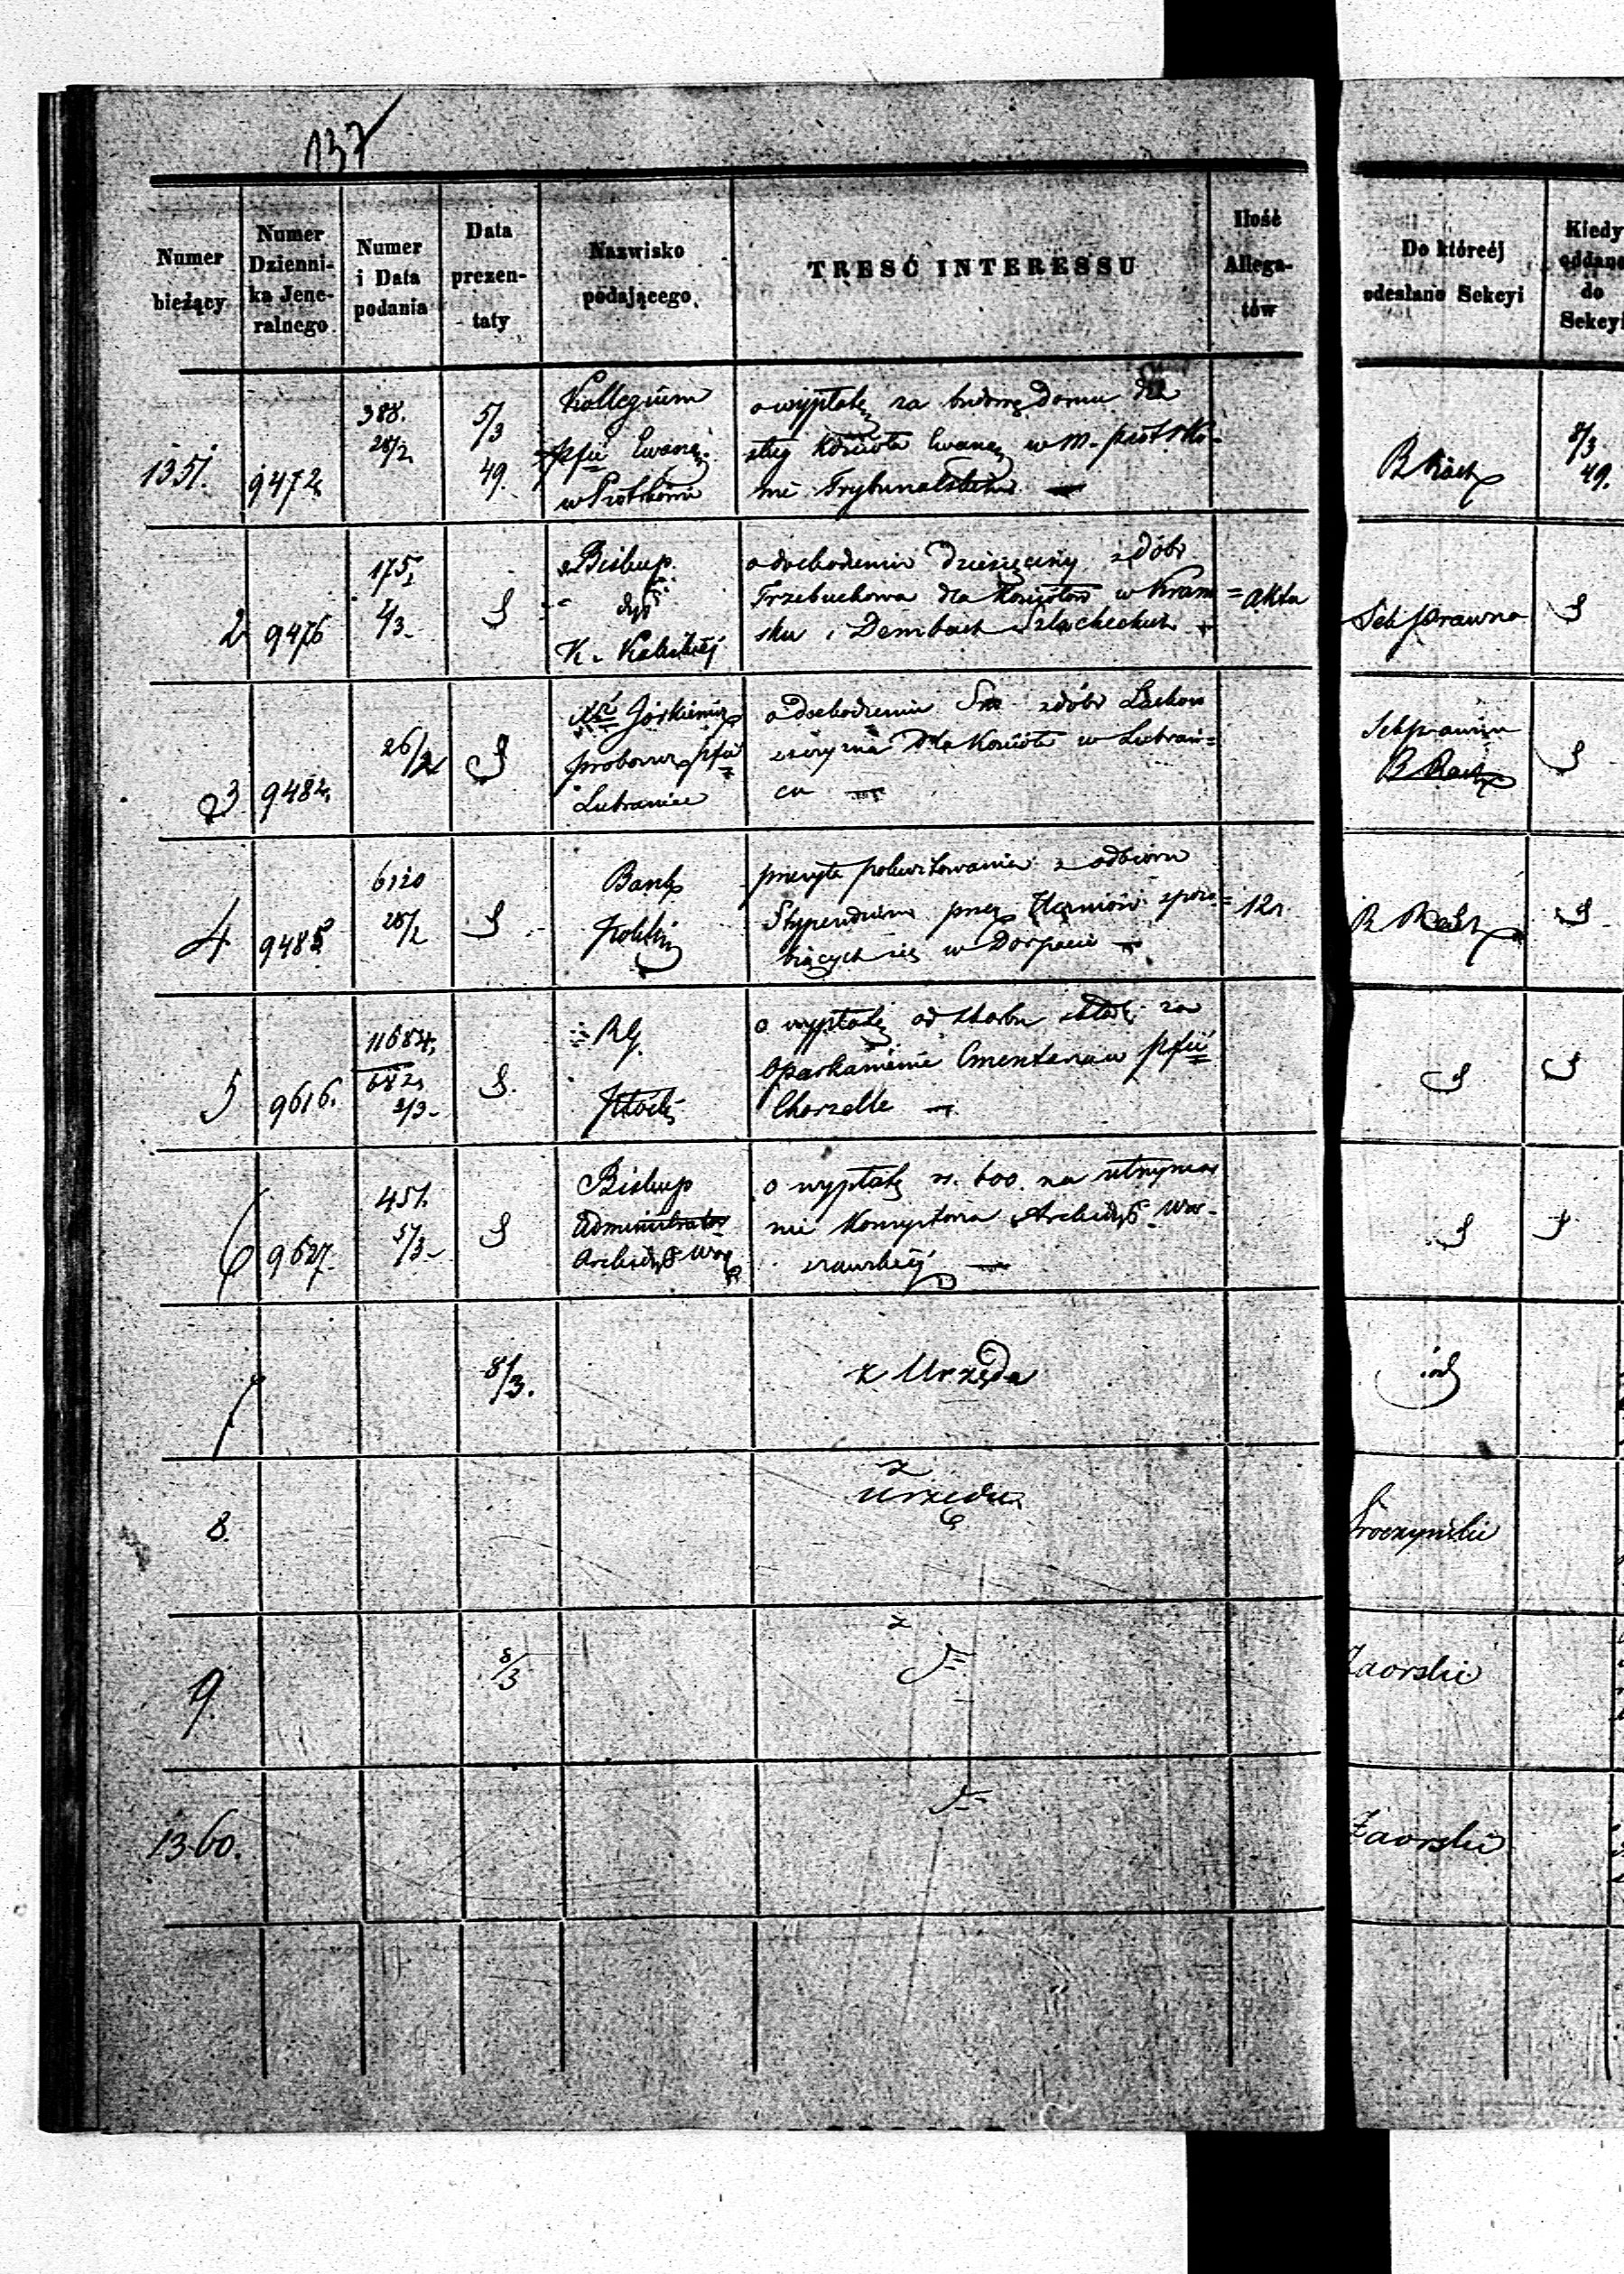 137
Numer bieżący
Numer Dzienni-ka Jene-ralnego
Numer i Data podania
Data prezen-taty
Nazwisko podającego
TREŚĆ INTERESSU
Ilość Allega-tów
Do któreéj odesłano Sekcyi
Kiedy oddano do Sekcyi
1351. 9472 388. 28/2 5/3 49.
Kollegium
pfii Ewang.
w Piotrkowie
o wypłatę za budowę Domu dla
sług Kościoła Ewang. w m. Piotrko-
wie Trybunalskim
B Rach
8/3 49.
2 9476 175, 4/3
Biskup
dyś
K. Kaliskiej
o dochodzeniu Dziesięciny z dóbr
Trzebuchowa dla Kościołów w Kram=
sku i Dembach Szlacheckich
akta
Sek prawna
3 9482, 26/2
proboszcz pfii
Lubraniec
o dochodzeniu z dóbr
dla Kościoła w Lubrań=
cu
Sek prawna
B Rach
4 9485 6120 28/2
Bank
Polski
przesyła pokwitowania z odbioru
Stypendium przez Uczniów sposo=
biących się w Dorpacie
12.
B Rach
5 9616. 11684, 682, 2/3
RG.
Płocki
o wypłatę od skarbu składki za
Oparkanienie Cmentarza w pfii
Chorzelle
6 9627. 451. 5/3
Biskup
Administrator
Archidyś War
o wypłatę rs. 600. na utrzyma
nie Konsystorza Archidyś War-
szawskiej
7 8/3.
z Urzędu
8.
z
Urzędu
9. 8/3
z
Zaorski
1360.
Zaorski